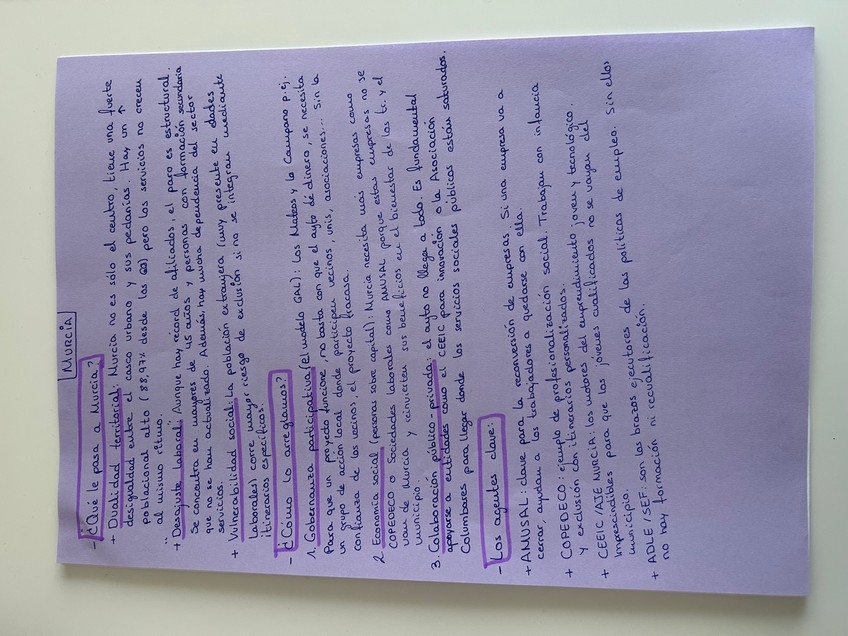 MURCIA
- ¿Qué le pasa a Murcia?
+ Dualidad territorial: Murcia no es sólo el centro, tiene una fuerte
desigualdad entre el casco urbano y sus pedanías. Hay un ↑
poblacional alto (88,97% desde los 60) pero los servicios no crecen
al mismo ritmo.
+ Desajuste laboral: Aunque hay récord de afiliados, el paro es estructural.
Se concentra en mayores de 45 años y personas con formación secundaria
que no se han actualizado. Además, hay mucha dependencia del sector
servicios.
+ Vulnerabilidad social: La población extranjera (muy presente en edades
laborales) corre mayor riesgo de exclusión si no se integran mediante
itinerarios específicos.
- ¿Cómo lo arreglamos?
1. Gobernanza participativa (El modelo GAL): Los Mateos y la Campano p.ej.
Para que un proyecto funcione, no basta con que el ayto dé dinero, se necesita
un grupo de acción local donde participen vecinos, unis, asociaciones... Sin la
confianza de los vecinos, el proyecto fracasa.
2. Economía social (personas sobre capital): Murcia necesita más empresas como
COPEDECO o Sociedades laborales como AMUSAL porque estas empresas no se
van de Murcia y reinvierten sus beneficios en el bienestar de los tr. y el
municipio.
3. Colaboración público-privada: el ayto no llega a todo. Es fundamental
apoyarse a entidades como el CEEIC para innovación o la Asociación
Columbares para llegar donde los servicios sociales públicos están saturados.
- Los agentes clave:
+ AMUSAL: clave para la reconversión de empresas. Si una empresa va a
cerrar, ayudan a los trabajadores a quedarse con ella.
+ COPEDECO: ejemplo de profesionalización social. Trabajan con infancia
y exclusión con itinerarios personalizados.
+ CEEIC/AJE MURCIA: los motores del emprendimiento joven y tecnológico.
Imprescindibles para que los jóvenes cualificados no se vayan del
municipio.
+ ADLE/SEF: son los brazos ejecutores de las políticas de empleo. Sin ellos
no hay formación ni recualificación.